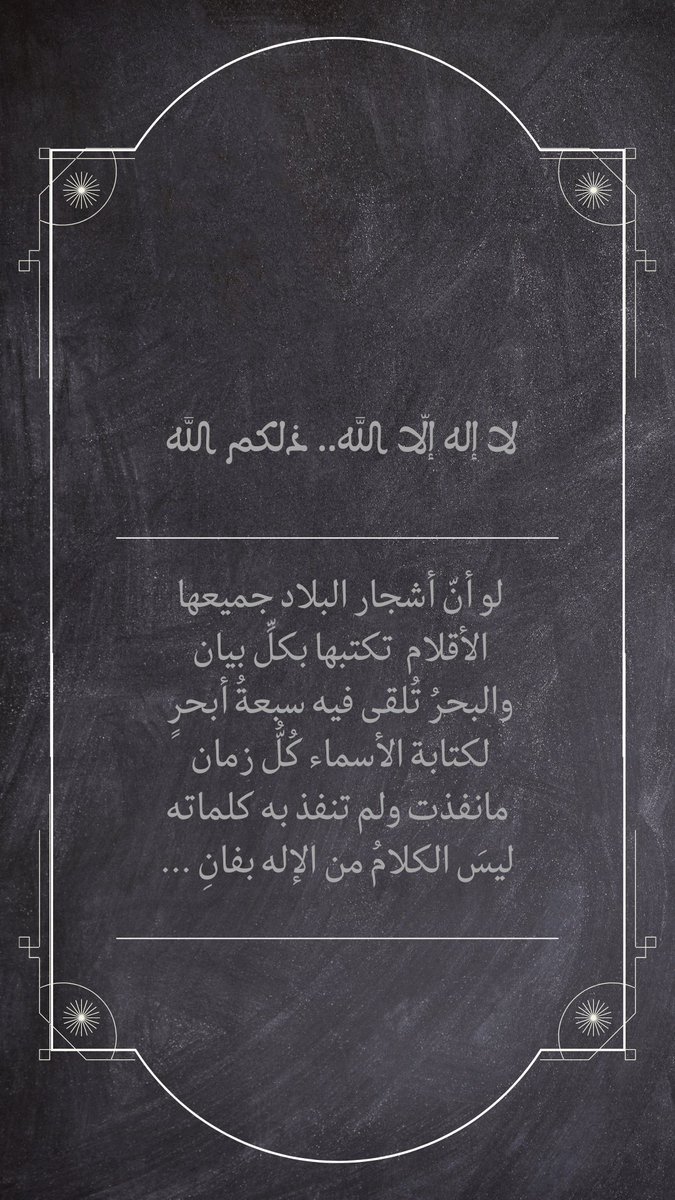 لا إله إلّا اللّه.. ذلكم اللّه
لو أنّ أشجار البلاد جميعها
الأقلام تكتبها بكلِّ بيان
والبحرُ تُلقى فيه سبعةُ أبحرٍ
لكتابة الأسماء كُلُّ زمان
مانفذت ولم تنفذ به كلماته
ليسَ الكلامُ من الإله بفانِ ...